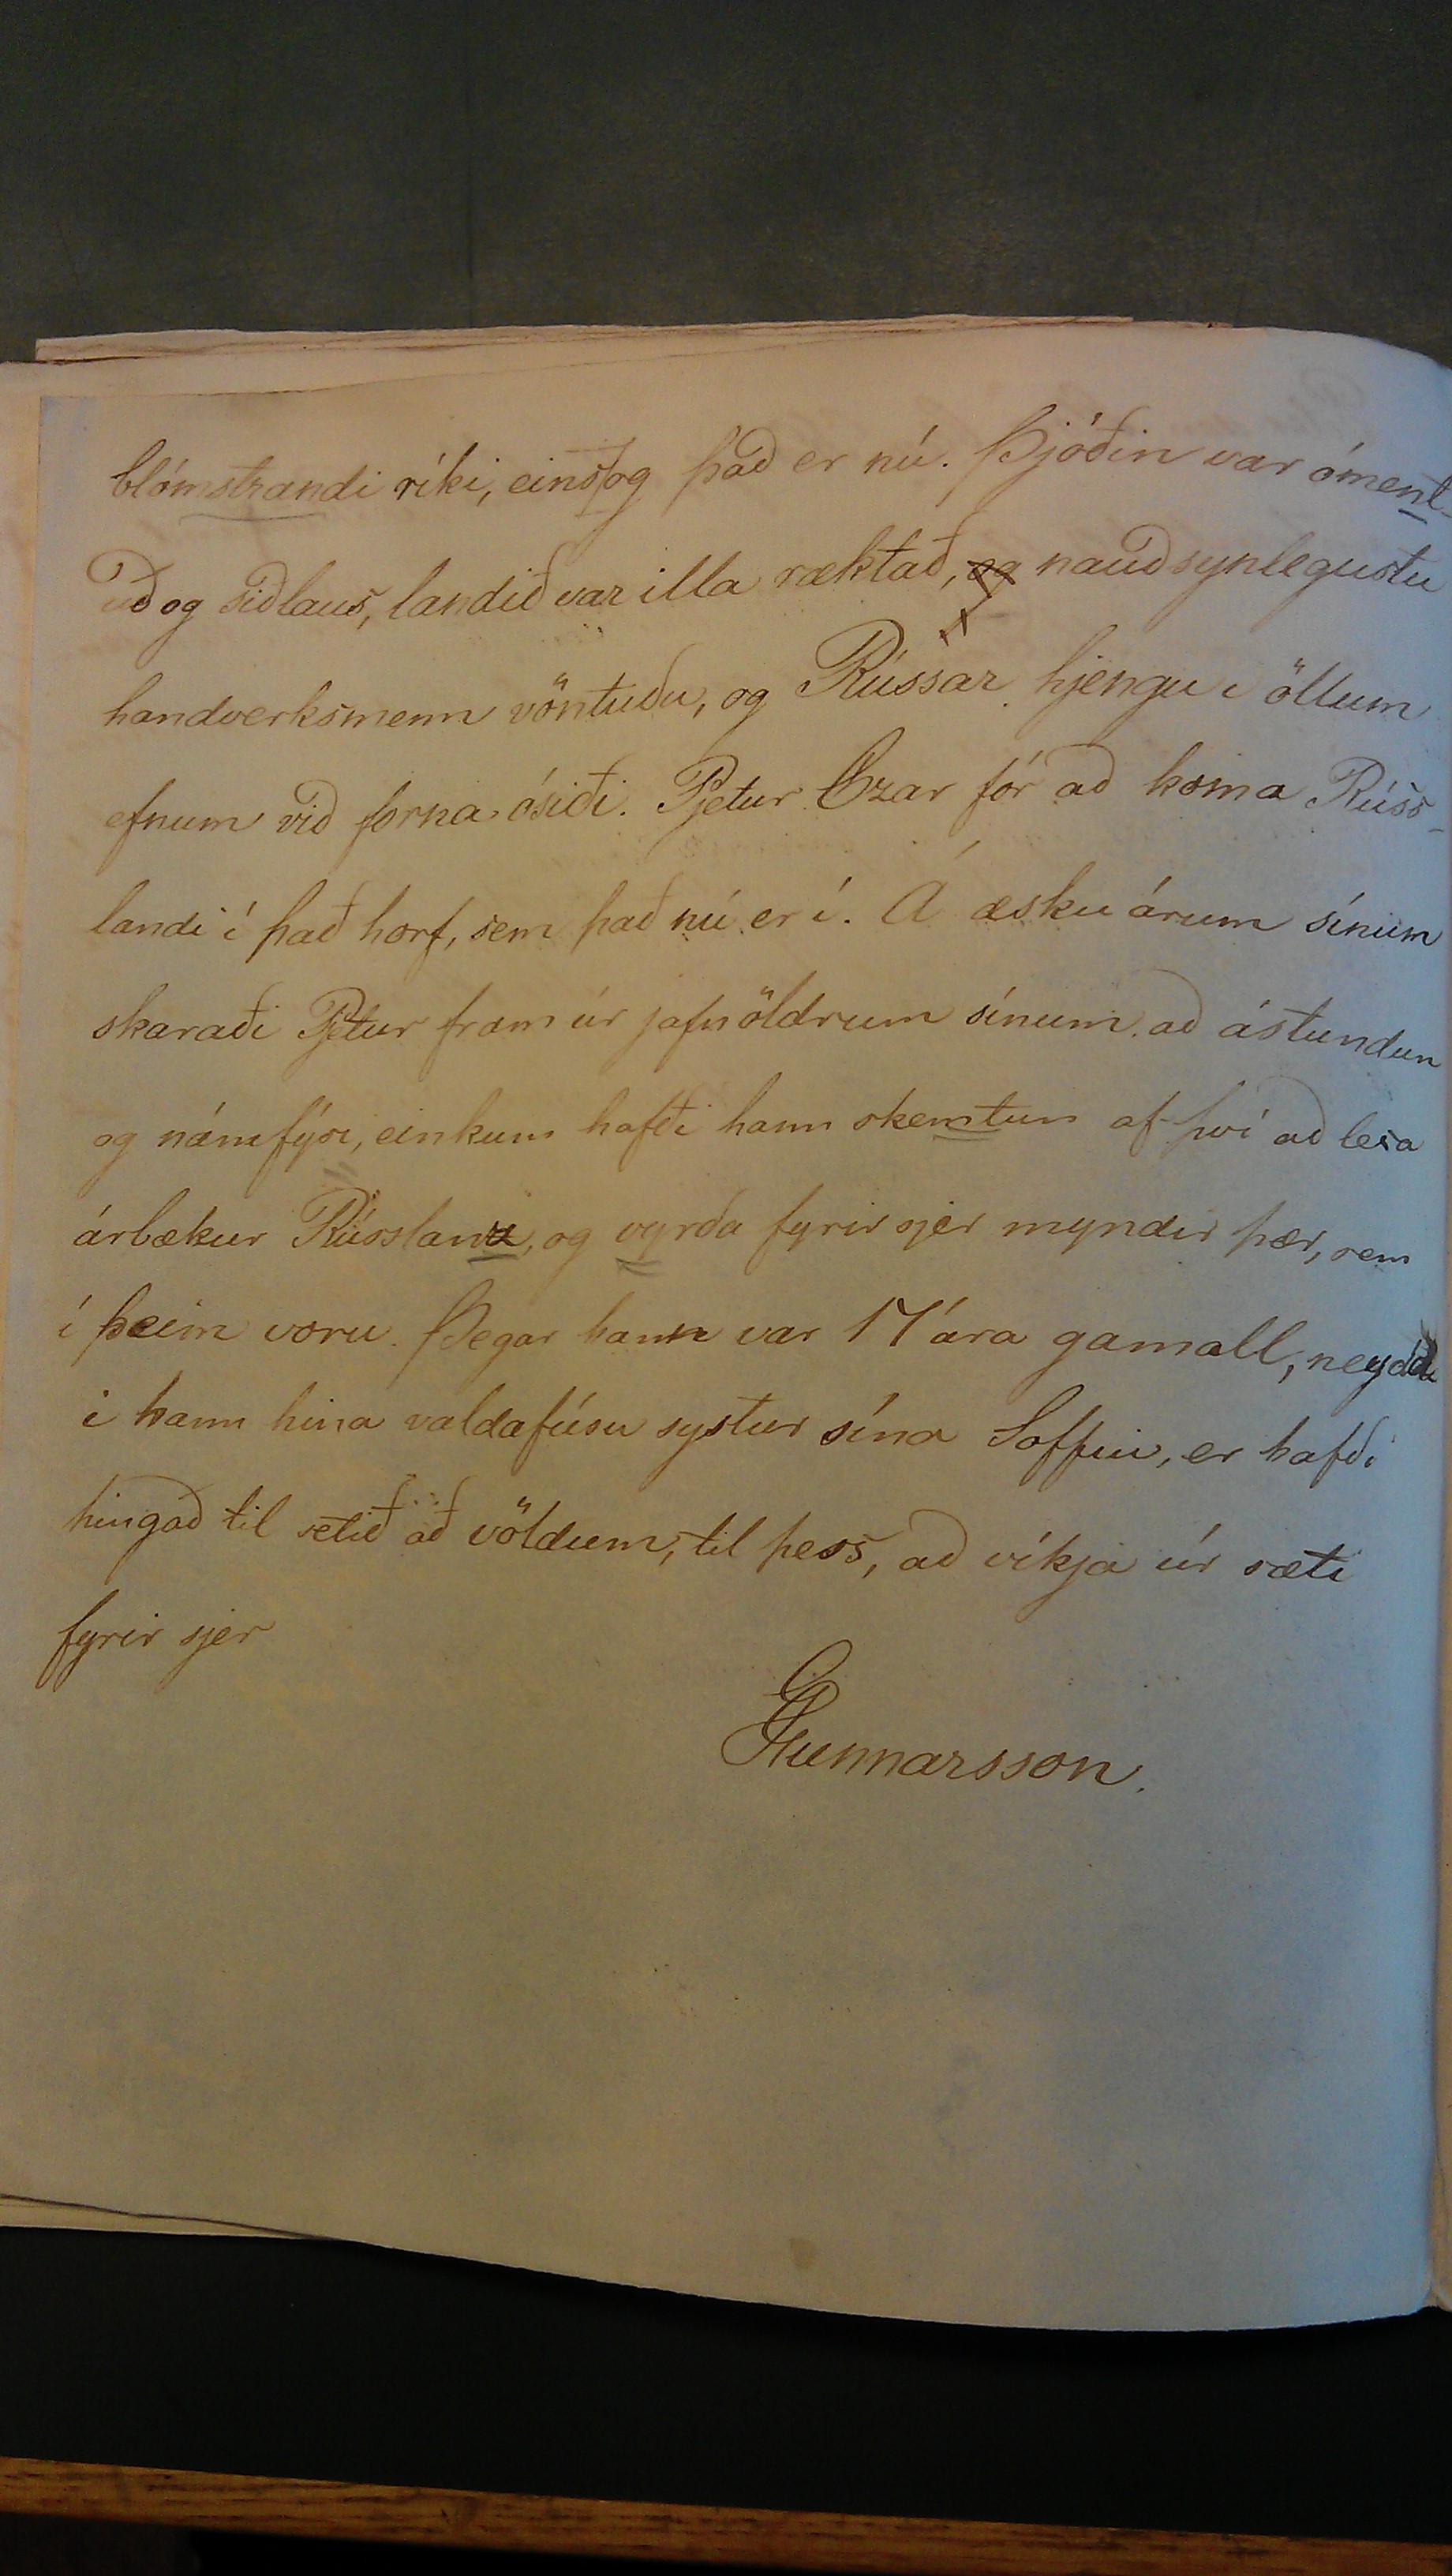 blómstrandi ríki, eins og það er nú. Þjóðin var óment-
uð og siðlaus, landið var illa ræktað, og nauðsynlegustu
handverksmenn vöntuðu, og Rússar hjengu í öllum
efnum við forna ósiði. Pjetur Czar fór að koma Rúss-
landi í það horf, sem það nú er í. Á æsku árum sínum
skaraði Pjetur fram úr jafnöldrum sínum að ástundun
og námfýsi, einkum hafði hann skemtun af því að lesa
árbækur og vyrða fyrir sjer myndir þær, sem
í þeim voru. Þegar hann var 17 ára gamall, neydd
i hann hina valdafúsu systur sína Soffíu, er hafði
hingað til setið að völdum, til þess, að víkja úr sæti
fyrir sjer
Gunnarsson.